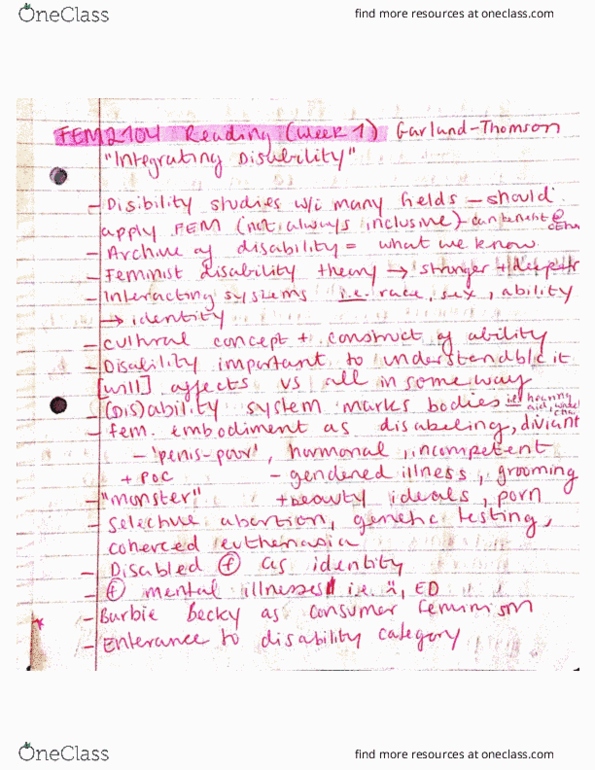 OneClass
find more resources at oneclass.com
FEM2104 Reading (week 1) Garland-Thomson
"Integrating Disability"
- Disibility studies w/i many fields - should
apply FEM (not always inclusive) - can benefit
- Archive of disability = what we know
- Feminist disability theory → stronger + deeper
- Interacting systems i.e. race, sex, ability
→ identity
- cultural concept + construct of ability
- Disability important to understand b/c it
[will] affects us all in some way
- (Dis)ability system marks bodies i.e. hearing aid, wheel chair
- fem. embodiment as disabeling, diviant
- 'penis-poor', hormonal, incompetent
+ POC - gendered illness, grooming
- "monster" + beauty ideals, porn
- Selective abortion, genetic testing,
coherced euthenasia
- Disabled (f) as identity
- (f) mental illnesses i.e. , ED
- Barbie Becky as consumer feminism
* - Enterance to disability category
OneClass
find more resources at oneclass.com